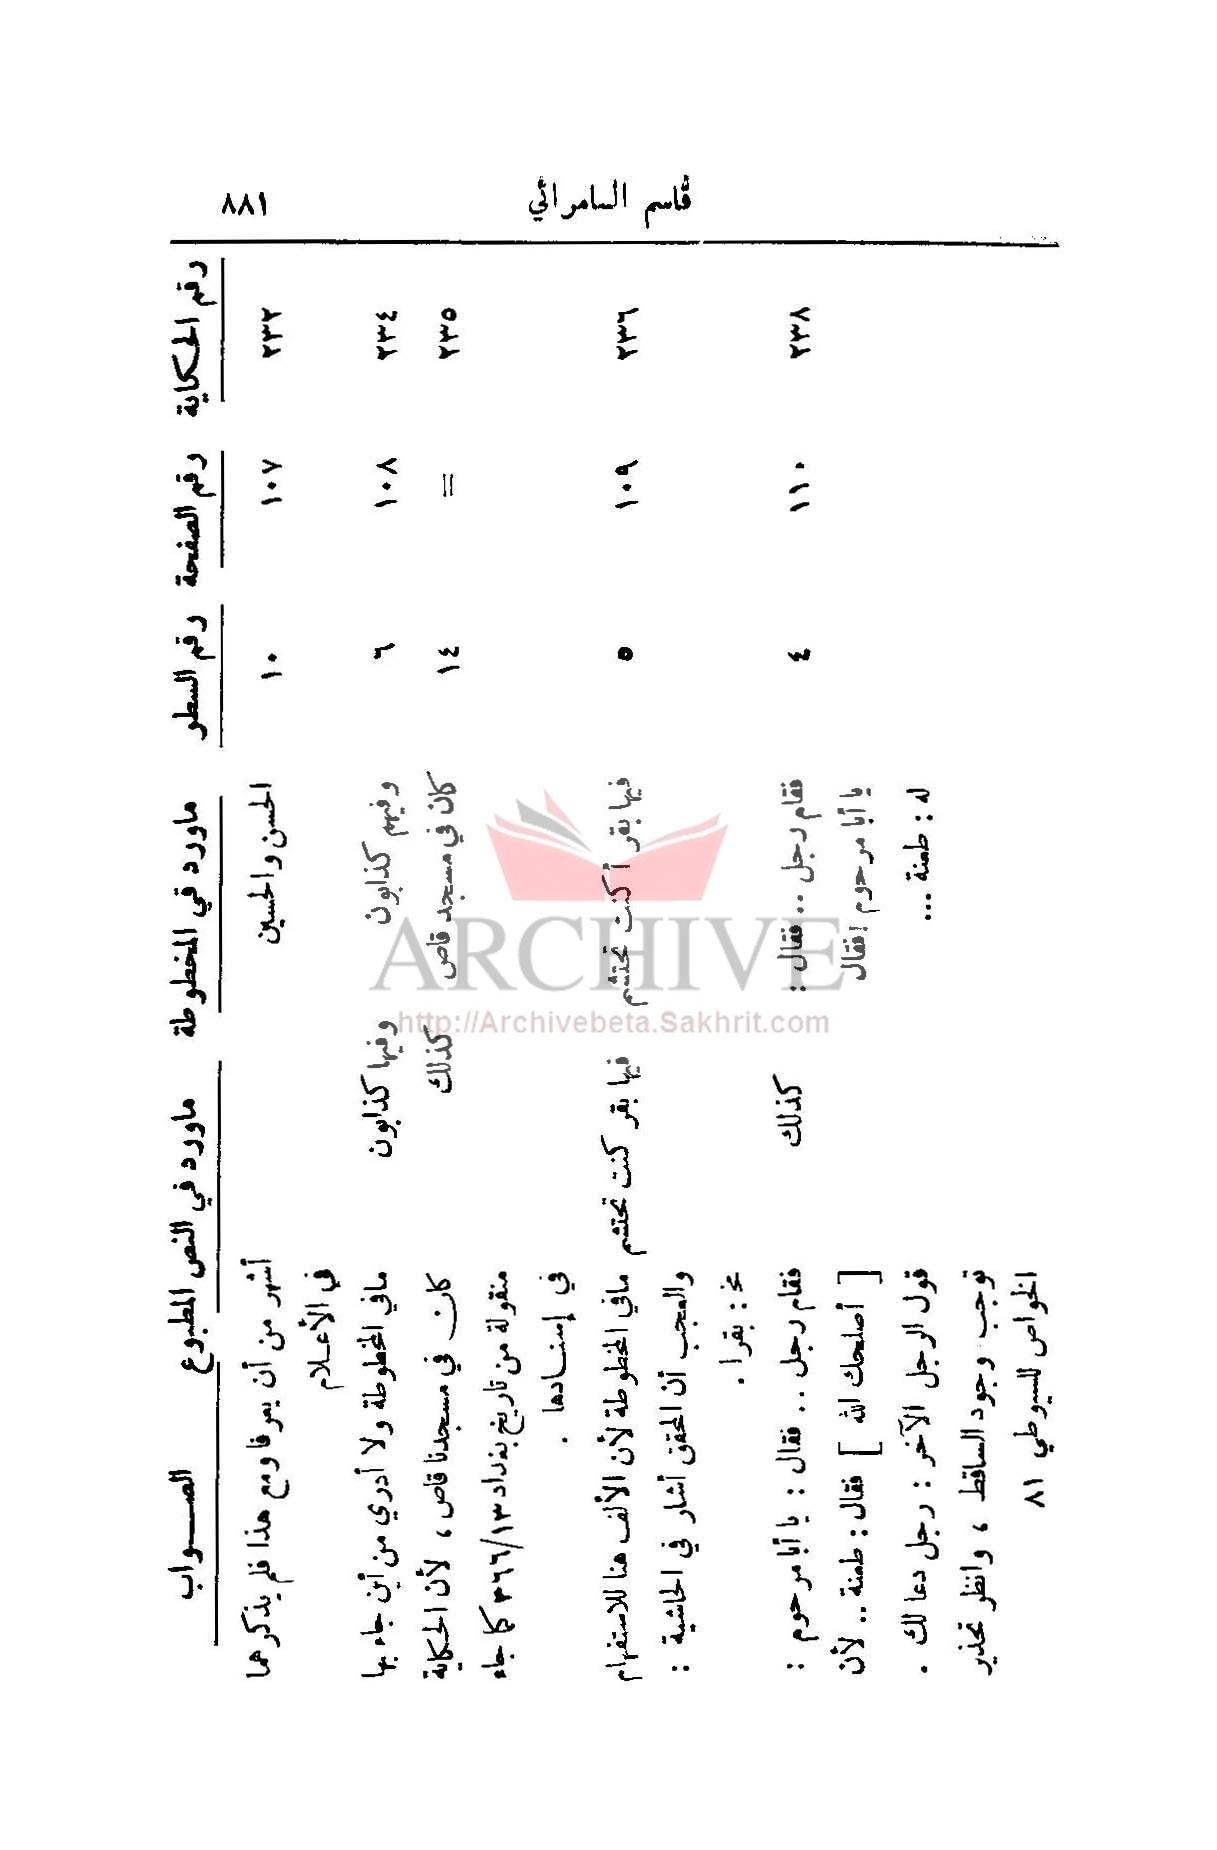 قاسم السامرائي
٨٨١
رقم الحكاية
رقم الصفحة
رقم السطر
ماورد في المخطوطة
ماورد في النص المطبوع
الصـــواب
٢٣٢
١٠٧
١٠
الحسن والحسين
أشهر من أن يعرفا ومع هذا فلم يذكرهما
في الأعـلام
٢٣٤
١٠٨
٦
وفيهم كذابون
وفيها كذابون
مافي المخطوطة ولا أدري من أين جاء بها
٢٣٥
=
١٤
كان في مسجد قاص
كذلك
كان في مسجدنا قاص ، لأن الحكاية
منقولة من تاريخ بغداد ٣٦٦/١٣ كما جاء
في إسنـادها .
٢٣٦
١٠٩
٥
فيها بقر أكنت تحتشم
فيها بقر كنت تحتشم
مافي المخطوطة لأن الألف هنا للاستفهام
والعجب أن المحقق أشار في الحاشية :
مخـ : بقرا .
٢٣٨
١١٠
٤
فقام رجل .. فقال :
يا أبا مرحوم ! فقال
له : طعنة ...
كذلك
فقام رجل .. فقال : يا أبا مرحوم :
[ أصلحك الله ] فقال : طعنة .. لأن
قول الرجل الآخر : رجل دعا لك .
توجب وجود الساقط ، وانظر تحذير
الخواص للسيوطي ٨١
ARCHIVE
http://Archivebeta.Sakhrit.com